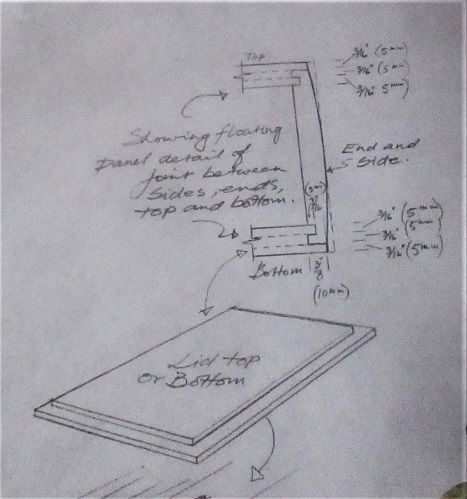 Top
3/16" (5mm)
3/16" (5mm)
3/16" 5mm)
Showing floating
panel detail of
joint between
sides, ends,
top and bottom.
End and
Side.
(5m)
3/16
3/16" (5mm)
3/16" (5mm)
3/16" (5mm)
Bottom
3/8"
(10mm)
Lid top
or Bottom